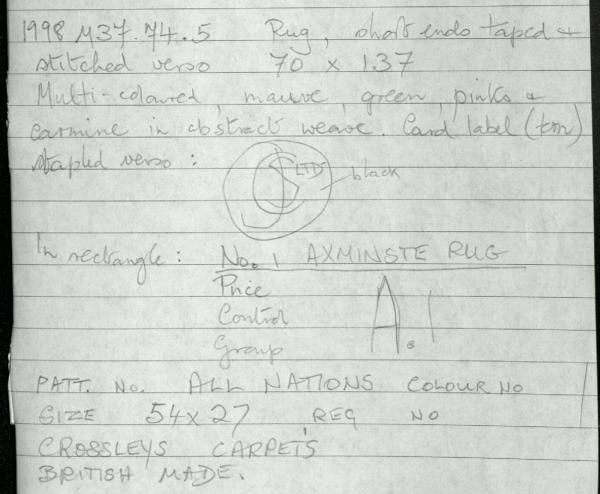 1998 M37.74.5 Rug, short ends taped +
stitched verso 70 x 137
Multi-coloured, mauve, green, pinks +
carmine in abstract weave. Card label (torn)
stapled verso:
LTD black
In rectangle: No. 1 AXMINSTE RUG
Price
Control A.1
Group
PATT. No. ALL NATIONS COLOUR NO
SIZE 54x27 REG NO
CROSSLEYS CARPETS
BRITISH MADE.